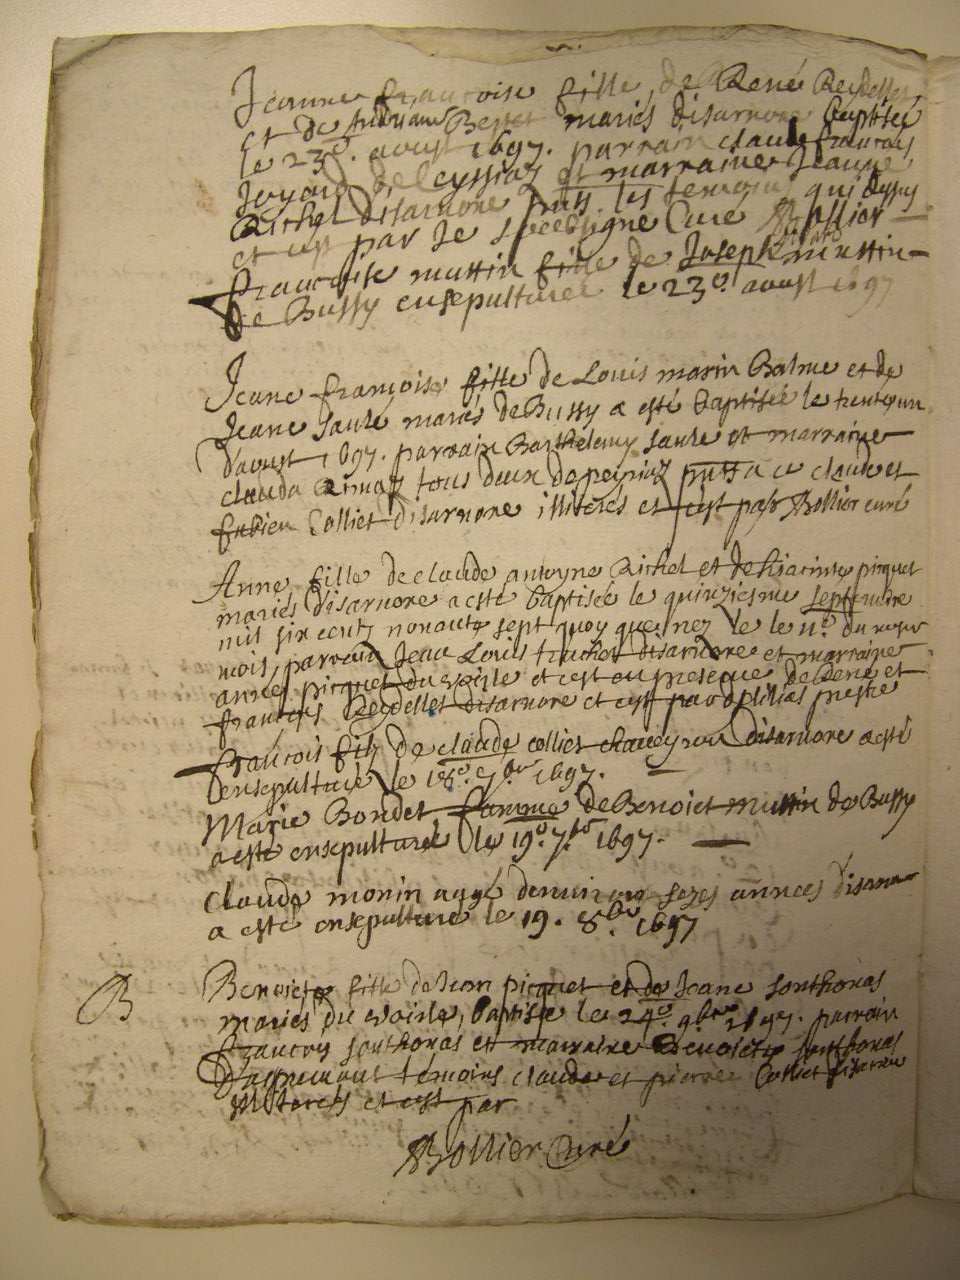 Jeanne françoise fille de René Reydellet
et de Bertet mariés disarnore baptisée
le 23e. aoust 1697. parrain claude françois
Joyard de leyssiaz et marraine Jeanne
Richel disarnore les temoins qui dessus
et c'est par Je soubsigne Curé ABollier
françoise muttin fille de Joseph muttin
de Bussy ensepulturee le 23e. aoust 1697
Jeane françoise fille de Louis marin Balme et de
Jeane saulé mariés de Bussy a esté baptisée le trente un
d'aoust 1697. parrain Barthelemy saule et marraine
clauda tous deux de peyriaz a ce claude et
fabien Colliet disarnore illiteres et c'est par ABollier curé
Anne fille de claude antoyne Richel et de hiacinte picquet
mariés disarnore a esté baptisée le quinziesme septembre
mil six cents nonante sept quoy que nez le 11e. du
mois, parrain Jean Louis trachet disarnore et marraine
anne picquet du voisle et c'est en presence de René et
françois Reydellet disarnore et c'est par prestre
françois filz de claude colliet disarnore a esté
ensepulturé le 18e. 7bre 1697.
Marie Bondet famme de Benoict muttin de Bussy
a esté ensepulturée le 19e. 7bre 1697.
claude monin aagé denviron sezes annees disarnore
a esté ensepulture le 19. 8bre 1697
B
Benoiste fille de Jean picquet et de Jeane sonthonas
mariés du voisle, baptisse le 24e. 9bre 1697. parrain
françois sonthonas et marraine Benoiste sonthonas
d'aspremont temoins claude et pierre Colliet disarnore
et c'est par
ABollier Curé